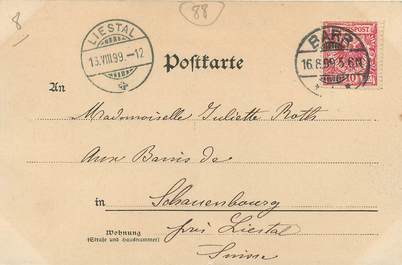 8
88
LIESTAL
13.VIII.99.-12
BARR
16.8.99.5.6N
10
Postkarte
An
Mademoiselle Juliette Roth
Aux Bains de
in Schauenbourg
près Liestal
Wohnung
(Straße und Hausnummer)
Suisse